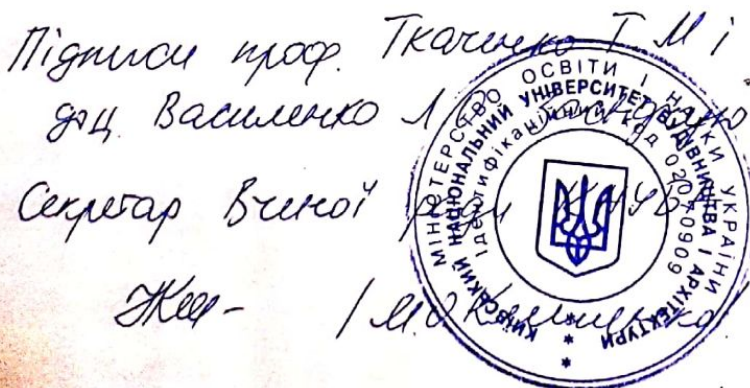 Підписи проф. Ткаченко Т.М і
доц. Василенко Л
Секретар Вченої ради КНУБА
МІНІСТЕРСТВО ОСВІТИ І НАУКИ УКРАЇНИ
КИЇВСЬКИЙ НАЦІОНАЛЬНИЙ УНІВЕРСИТЕТ БУДІВНИЦТВА І АРХІТЕКТУРИ
Ідентифікаційний код 02070909